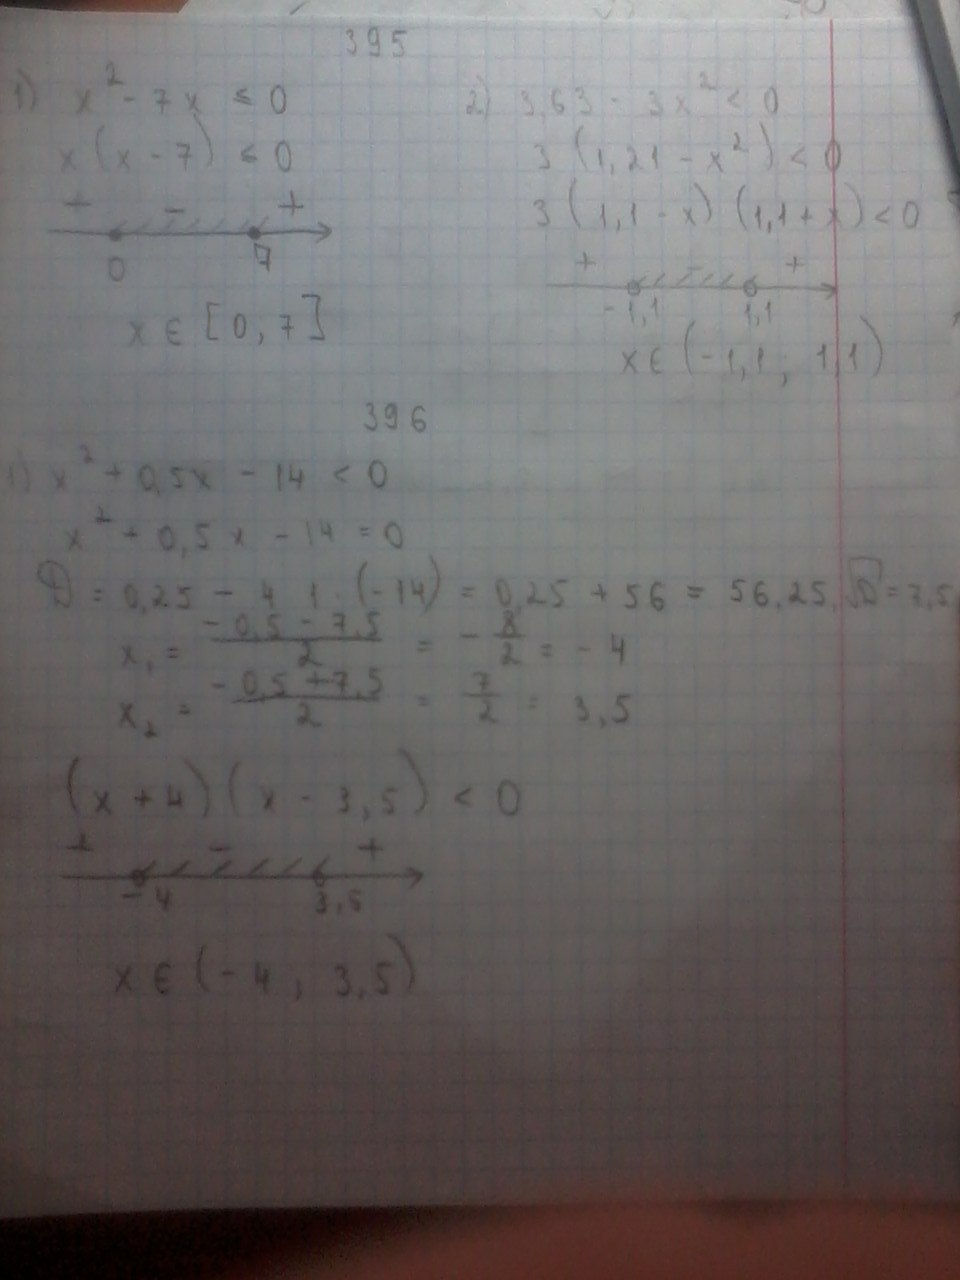 395
1) x² - 7x ≤ 0
x(x - 7) ≤ 0
+ - +
0 7
x ∈ [0, 7]
2) 3,63 - 3x² < 0
3(1,21 - x²) < 0
3(1,1 - x)(1,1 + x) < 0
+ - +
-1,1 1,1
x ∈ (-1,1; 1,1)
396
1) x² + 0,5x - 14 < 0
x² + 0,5x - 14 = 0
D = 0,25 - 4·1·(-14) = 0,25 + 56 = 56,25, √D = 7,5
x₁ = (-0,5 - 7,5)/2 = -8/2 = -4
x₂ = (-0,5 + 7,5)/2 = 7/2 = 3,5
(x + 4)(x - 3,5) < 0
+ - +
-4 3,5
x ∈ (-4, 3,5)